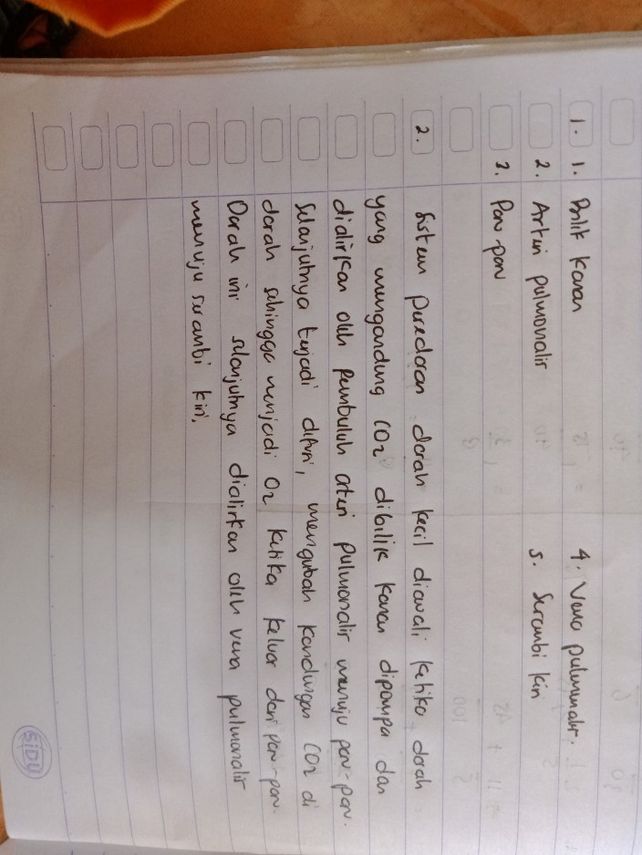 1. 1. Bilik kanan 4. Vena pulmunalir.
2. Arteri pulmonalir 5. Serambi kiri
3. Paru-paru
2. Sistem Peredaran darah kecil diawali ketika darah
yang mengandung CO2 dibilik kanan dipompa dan
dialirkan oleh Pembuluh arteri pulmonalir menuju paru-paru.
Selanjutnya terjadi difusi, mengubah kandungan CO2 di
darah sehingga menjadi O2 ketika keluar dari paru-paru.
Darah ini selanjutnya dialirkan oleh vena pulmonalir
menuju serambi kiri,
SIDU